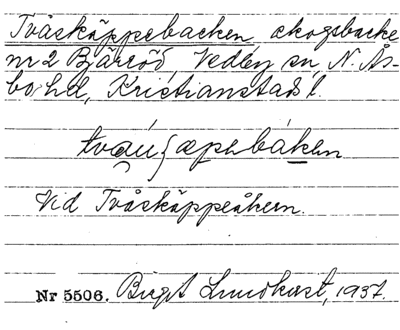 Tvåskäppebacken, skogsbacke
nr 2 Bjärröd Vedby sn, N. Ås-
bo hd, Kristianstads l.
Vid Tvåskäppeåkern.
Nr 5506. Birgit Lundkvist, 1937.